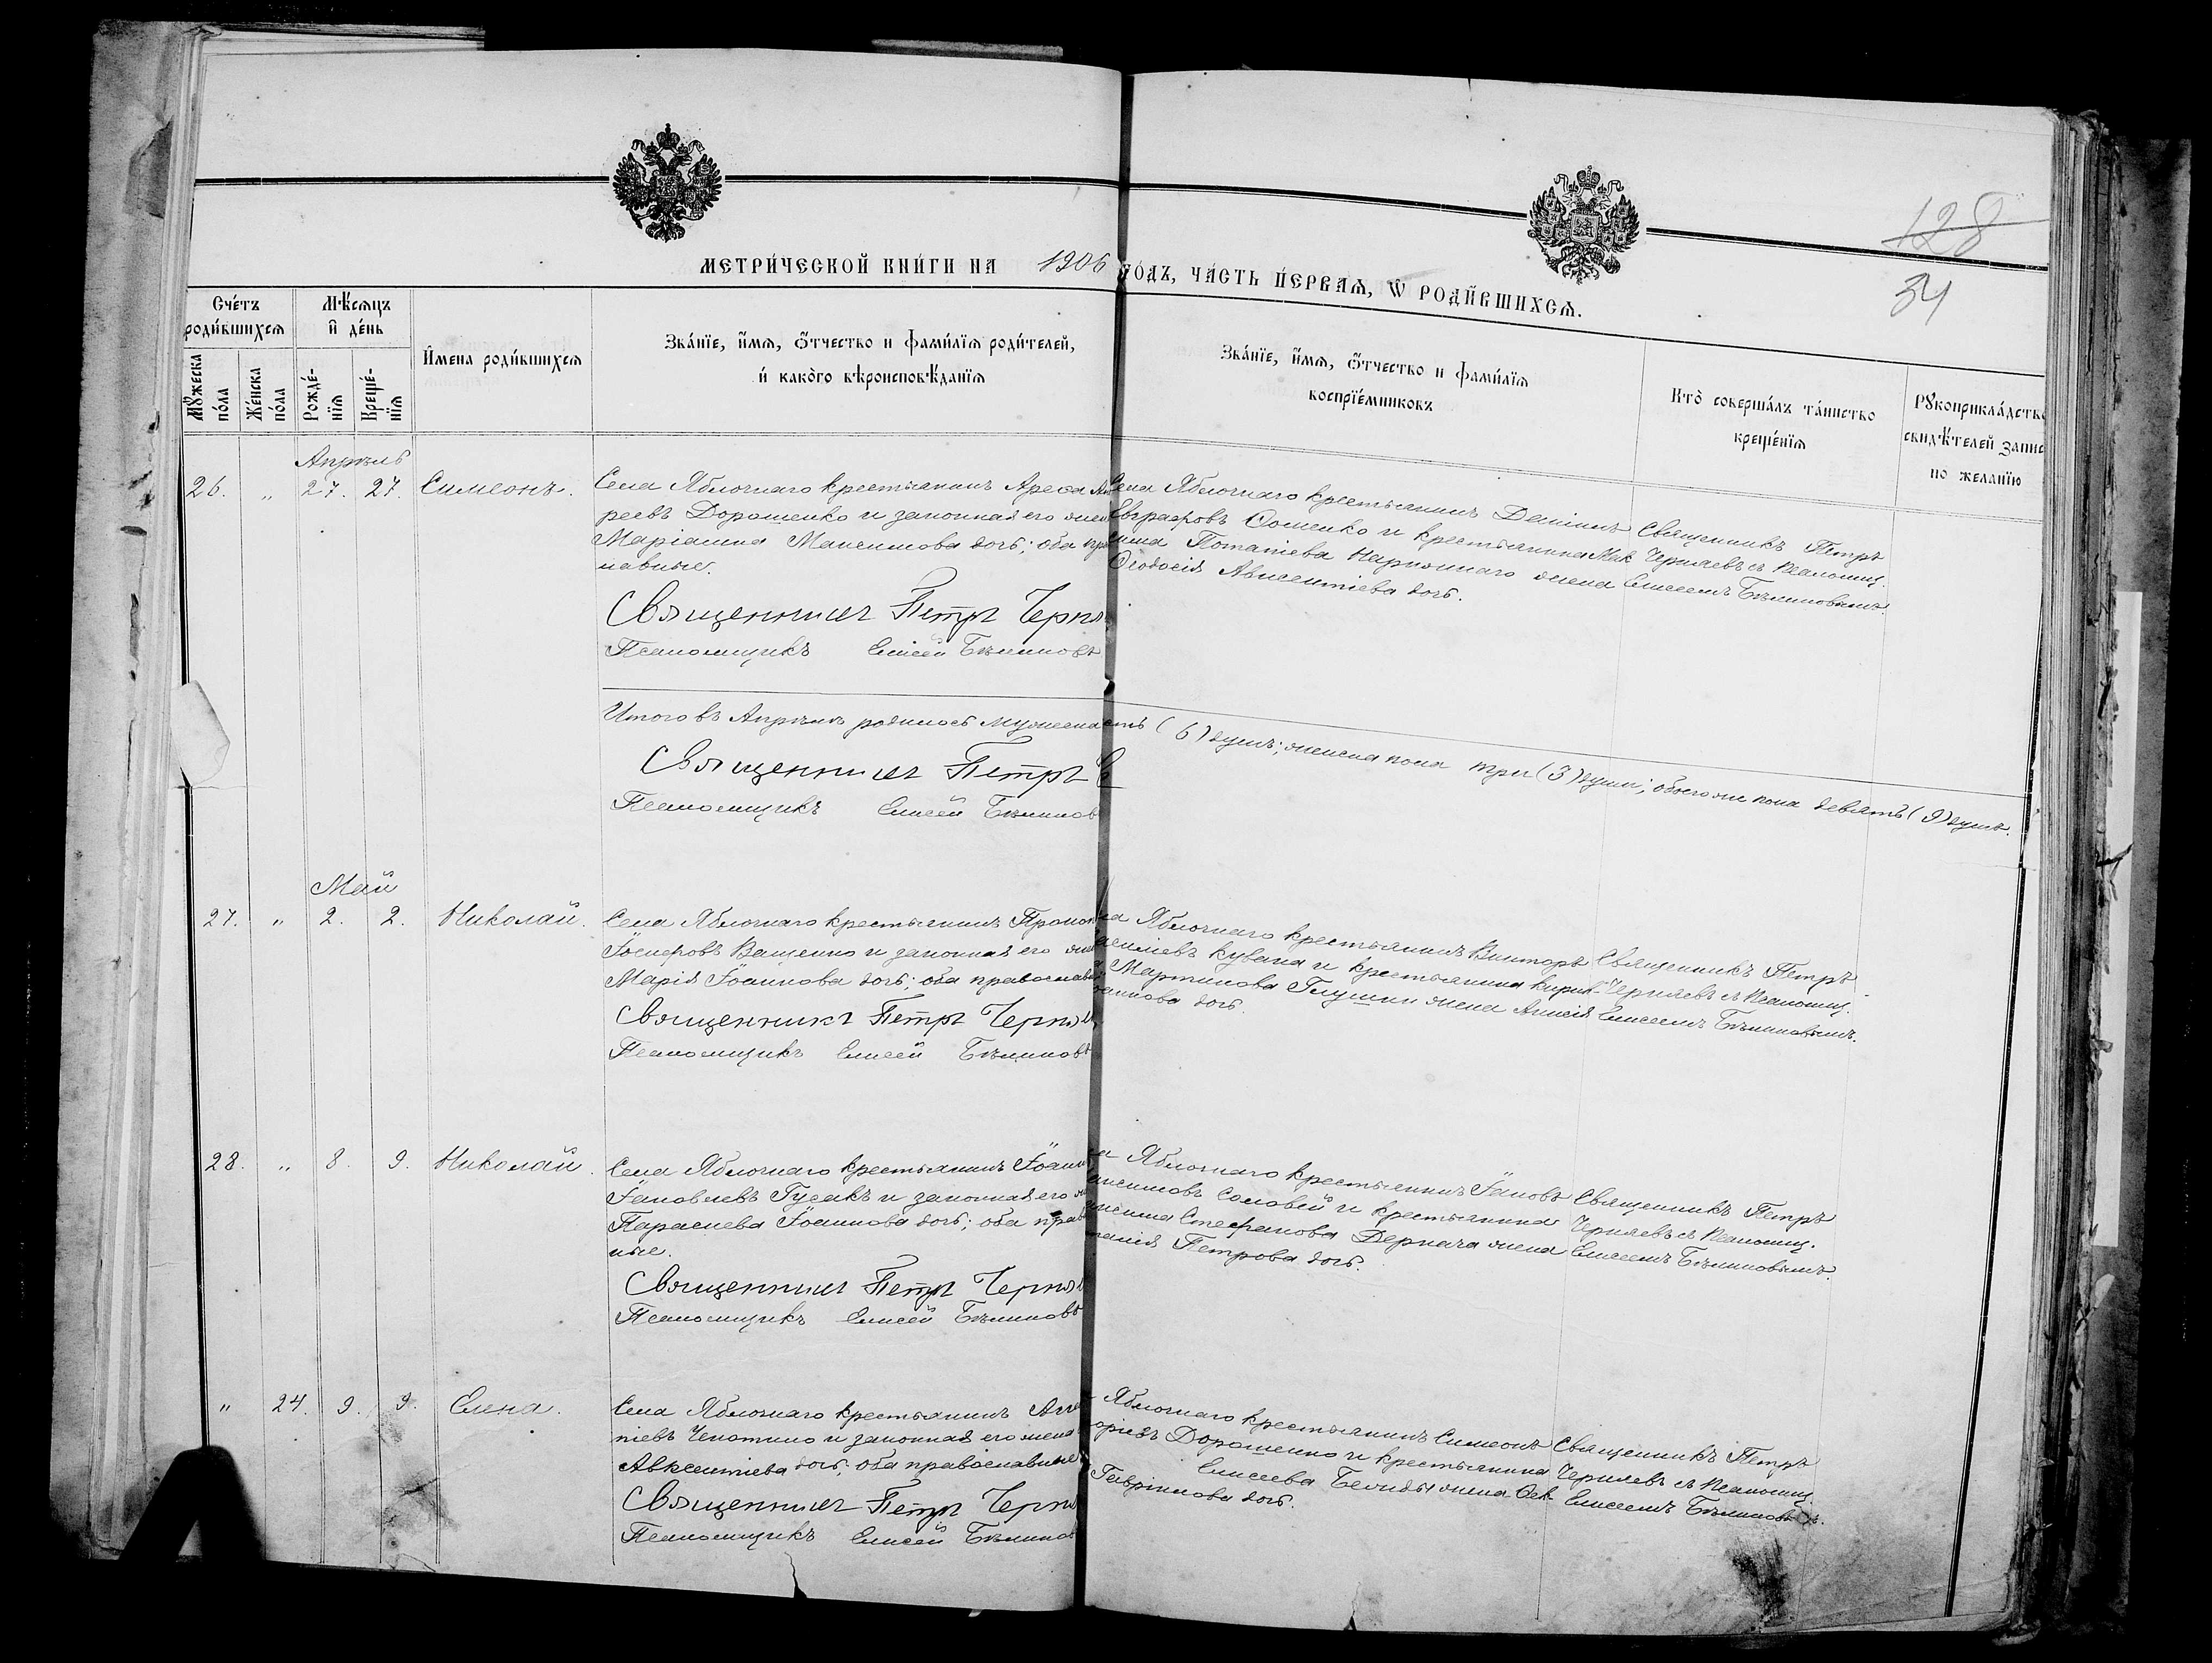 128
34
МЕТРИ́ЧЕСКОЙ КНИ́ГИ НА 1906 ГО́ДЪ, ЧА́СТЬ ПЕ́РВАѦ, Ѡ РОДИ́ВШИХСѦ.
Сче́тъ роди́вшихсѧ
Мꙋ́жеска по́ла
Же́нска по́ла
Мѣ́сѧцъ и҆ де́нь
Рожде́-нїѧ
Креще́-нїѧ
И҆мена роди́вшихсѧ
Зва́нїе, и҆́мѧ, ѻ҆́тчество и фами́лїѧ роди́телей,
и҆ како́го вѣроисповѣ́данїѧ
Зва́нїе, и҆́мѧ, ѻ҆́тчество и фами́лїѧ
воспрїе́мниковъ
Кто̀ соверша́лъ та́инство
креще́нїѧ
Рꙋкоприкла́дство
свидѣ́телей запис
по жела́нїю
Апрѣль
26. " 27. 27. Симеонъ.
Села Яблочнаго крестьянинъ Ареѳа
реевъ Дорошенко и законная его жен
Маріамна Максимова дочь; оба пра
лавные.
Священникъ Петръ Черня
Псаломщикъ Елисей Бѣлиновъ
Села Яблочнаго крестьянинъ Даніилъ
Евграфовъ Ѳоменко и крестьянина Мак
сима Потапіева Нарожнаго жена
Ѳеодосія Авксентіева дочь.
Священникъ Петръ
Черняевъ съ псаломщ.
Елисеемъ Бѣлиновымъ.
Итого въ Апрѣлѣ родилось мужеска есть (6) душъ; женска пола три (3) души; обоего же пола девять (9) душъ.
Священникъ Петръ Ч
Псаломщикъ Елисей Бѣлинов
Май
27. " 2. 2. Николай.
Села Яблочнаго крестьянинъ Проко
Іосифовъ Ващенко и законная его жен
Марія Іоаннова дочь; оба православ
Священникъ Петръ Черняе
Псаломщикъ Елисей Бѣлиновъ
ла Яблочнаго крестьянинъ Викторъ
силіевъ Кувака и крестьянина Кирил-
а Мартинова Глушки жена Анисія
оаннова дочь.
Священникъ Петръ
Черняевъ съ псаломщ.
Елисеемъ Бѣлиновымъ.
28. " 8. 9. Николай.
Села Яблочнаго крестьянинъ Іоанн
Іаковлевъ Гусакъ и законная его ж
Параскева Іоаннова дочь; оба прав
ные.
Священникъ Петръ Черняе
Псаломщикъ Елисей Бѣлиновъ
а Яблочнаго крестьянинъ Іаковъ
ксимовъ Соловей и крестьянина
Стефанова Деркача жена
Петрова дочь.
Священникъ Петръ
Черняевъ съ псаломщ.
Елисеемъ Бѣлиновымъ.
" 24. 9. 9. Елена.
Села Яблочнаго крестьянинъ
піевъ Чепотино и законная его жена
Авксентіева дочь; оба православные
Священникъ Петръ Черня
Псаломщикъ Елисей Бѣлинов
Яблочнаго крестьянинъ Симеонъ
оріевъ Дорошенко и крестьянина
Елисеева жена Ѳек
Гавріилова дочь.
Священникъ Петръ
Черняевъ съ псаломщ.
Елисеемъ Бѣлиновымъ.